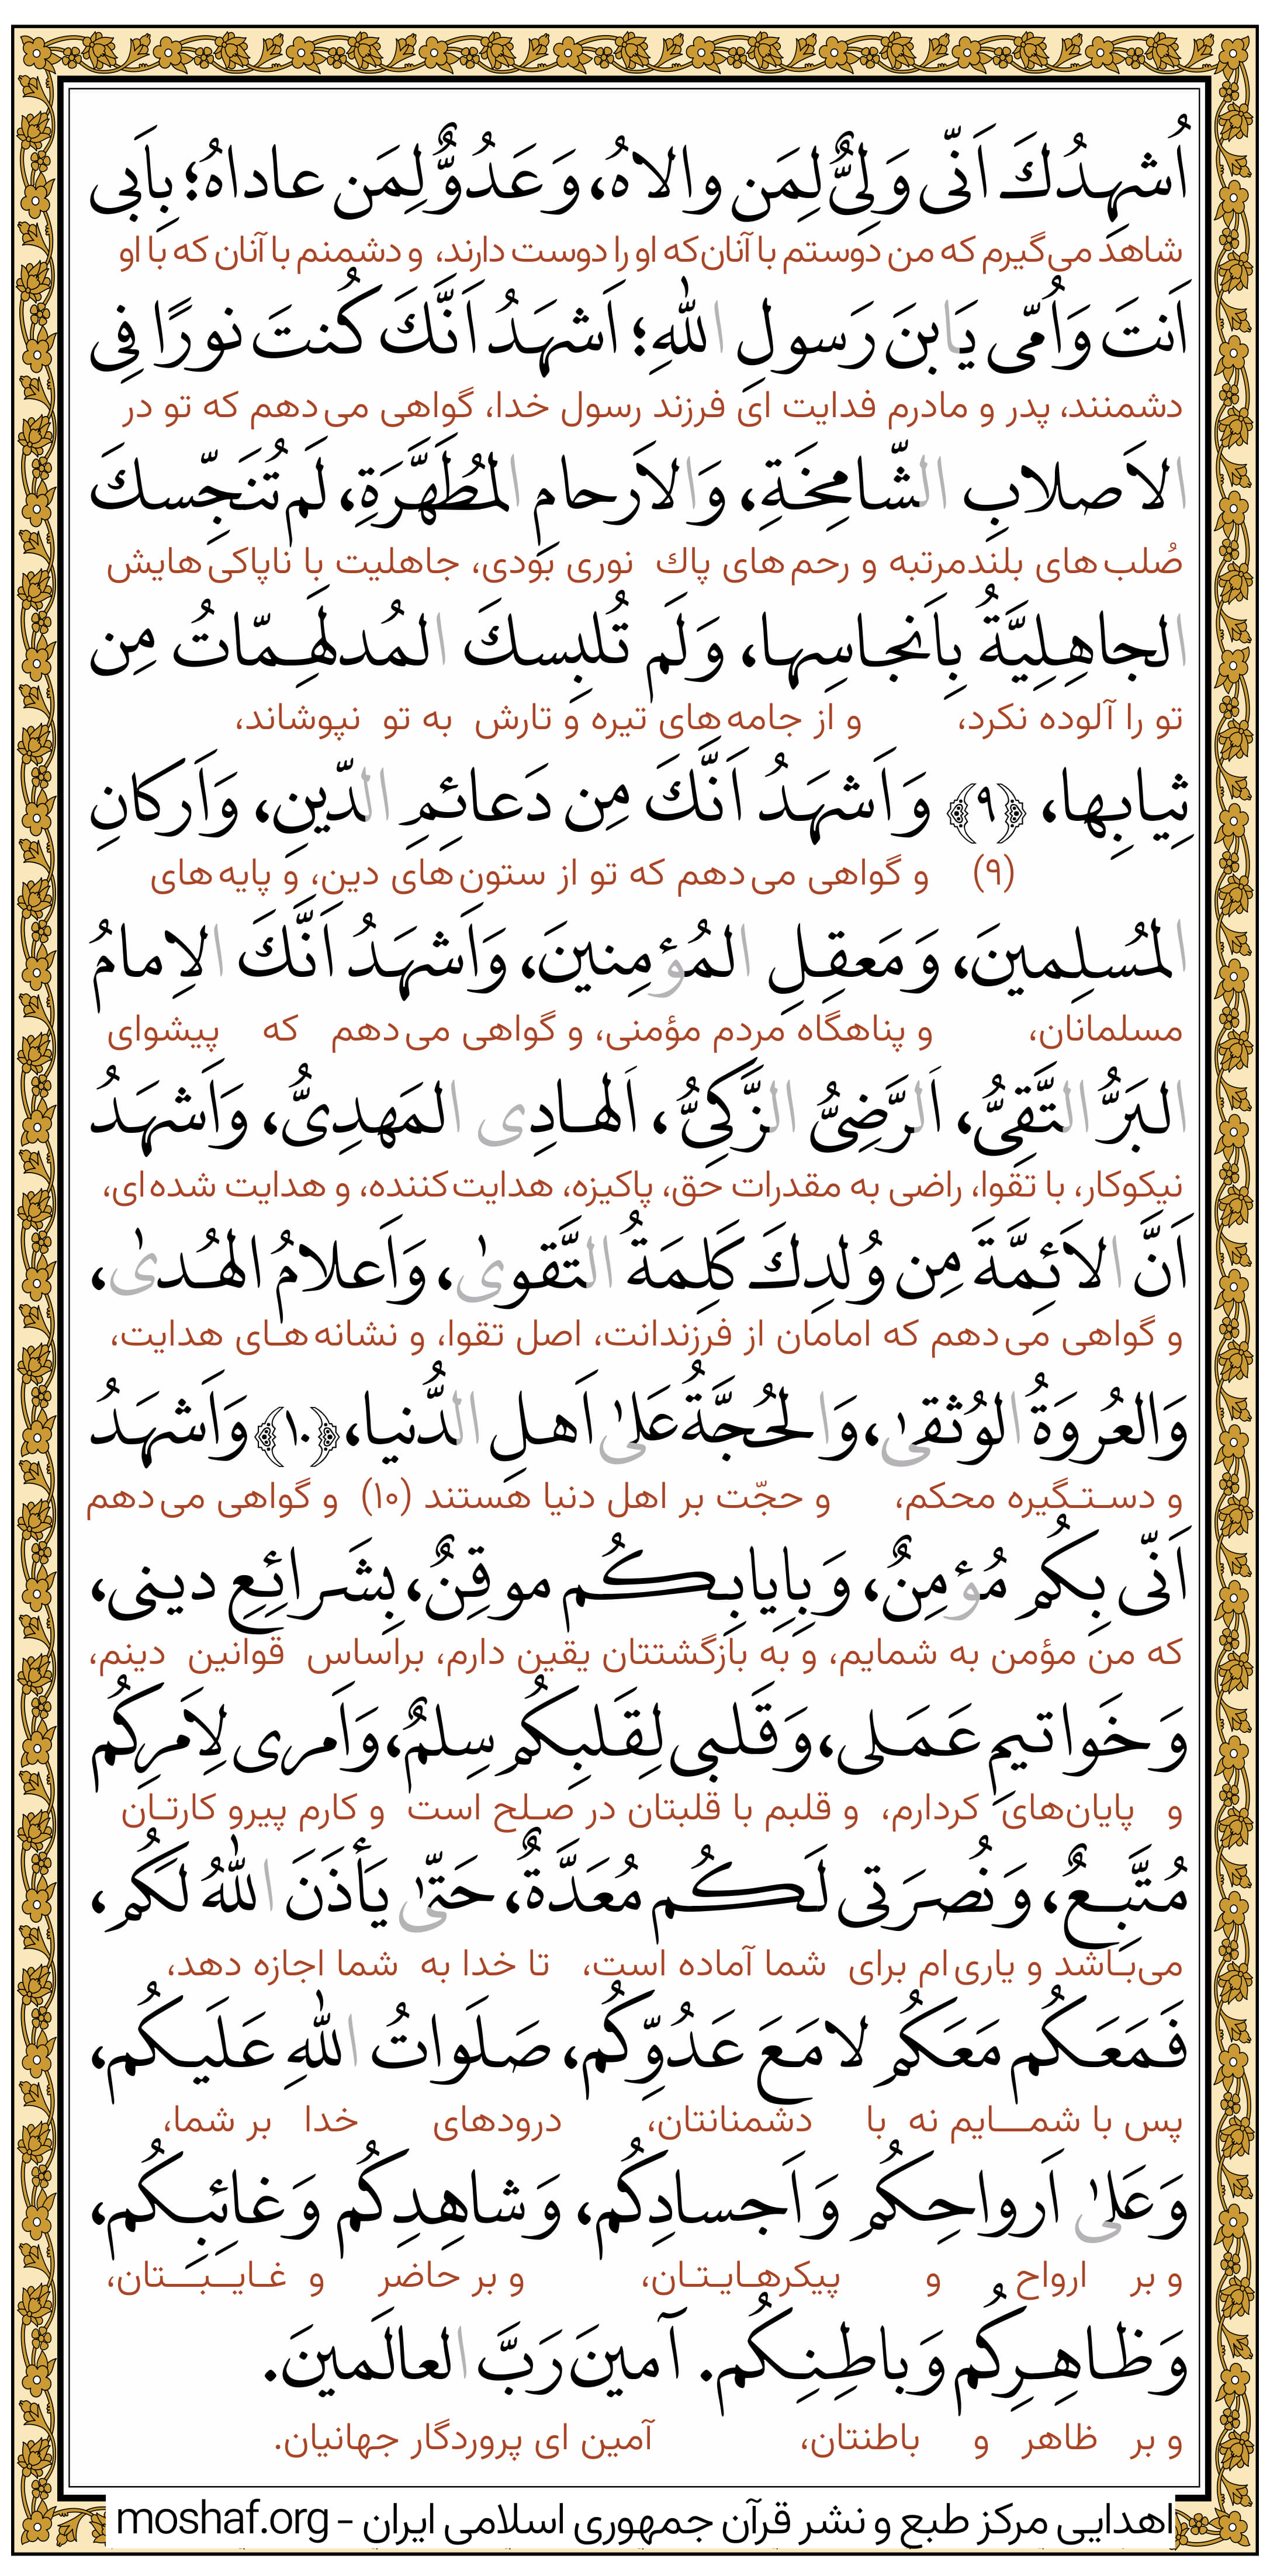 اُشهِدُكَ اَنّی وَلِیٌّ لِمَن والاهُ، وَ عَدُوٌّ لِمَن عاداهُ؛ بِاَبی
شاهد می‌گیرم که من دوستم با آنان‌که او را دوست دارند، و دشمنم با آنان که با او
اَنتَ وَ اُمّی یَابنَ رَسولِ اللّٰهِ؛ اَشهَدُ اَنَّكَ كُنتَ نورًا فِی
دشمنند، پدر و مادرم فدایت ای فرزند رسول خدا، گواهی می‌دهم که تو در
الاَصلابِ الشّامِخَةِ، وَ الاَرحامِ المُطَهَّرَةِ، لَم تُنَجِّسكَ
صُلب‌های بلندمرتبه و رحم‌های پاك نوری بودی، جاهلیت با ناپاکی‌هایش
الجاهِلِیَّةُ بِاَنجاسِها، وَ لَم تُلبِسكَ المُدلَهِمّاتُ مِن
تو را آلوده نکرد، و از جامه‌های تیره و تارش به تو نپوشاند،
ثِیابِها، ﴿٩﴾ وَ اَشهَدُ اَنَّكَ مِن دَعائِمِ الدّینِ، وَ اَركانِ
(۹) و گواهی می‌دهم که تو از ستون‌های دین، و پایه‌های
المُسلِمینَ، وَ مَعقِلِ المُؤمِنینَ، وَ اَشهَدُ اَنَّكَ الاِمامُ
مسلمانان، و پناهگاه مردم مؤمنی، و گواهی می‌دهم که پیشوای
البَرُّ التَّقِیُّ، اَلرَّضِیُّ الزَّكِیُّ، اَلهادِی المَهدِیُّ، وَ اَشهَدُ
نیکوکار، با تقوا، راضی به مقدرات حق، پاکیزه، هدایت‌کننده، و هدایت شده‌ای،
اَنَّ الاَئِمَّةَ مِن وُلدِكَ كَلِمَةُ التَّقویٰ، وَ اَعلامُ الهُدیٰ،
و گواهی می‌دهم که امامان از فرزندانت، اصل تقوا، و نشانه‌هـای هدایت،
وَ العُروَةُ الوُثقیٰ، وَ الحُجَّةُ عَلیٰ اَهلِ الدُّنیا، ﴿١٠﴾ وَ اَشهَدُ
و دستـگیره محکم، و حجّت بر اهل دنیا هستند (۱۰) و گواهی می‌دهم
اَنّی بِكُم مُؤمِنٌ، وَ بِاِیابِكُم موقِنٌ، بِشَرائِعِ دینی،
که من مؤمن به شمایم، و به بازگشتتان یقین دارم، براساس قوانین دینم،
وَ خَواتیمِ عَمَلی، وَ قَلبی لِقَلبِكُم سِلمٌ، وَ اَمری لِاَمرِكُم
و پایان‌های کردارم، و قلبم با قلبتان در صـلح است و کارم پیرو کارتـان
مُتَّبِعٌ، وَ نُصرَتی لَكُم مُعَدَّةٌ، حَتّیٰ یَأذَنَ اللّٰهُ لَكُم،
می‌بـاشد و یاری‌ام برای شما آماده است، تا خدا به شما اجازه دهد،
فَمَعَكُم مَعَكُم لا مَعَ عَدُوِّكُم، صَلَواتُ اللّٰهِ عَلَیكُم،
پس با شمــایم نه با دشمنانتان، درودهای خدا بر شما،
وَ عَلیٰ اَرواحِكُم وَ اَجسادِكُم، وَ شاهِدِكُم وَ غائِبِكُم،
و بر ارواح و پیکرهـایـتـان، و بر حاضر و غـایــبــتان،
وَ ظاهِرِكُم وَ باطِنِكُم. آمینَ رَبَّ العالَمینَ.
و بر ظاهر و باطنتان، آمین ای پروردگار جهانیان.
اهدایی مرکز طبع و نشر قرآن جمهوری اسلامی ایران - moshaf.org